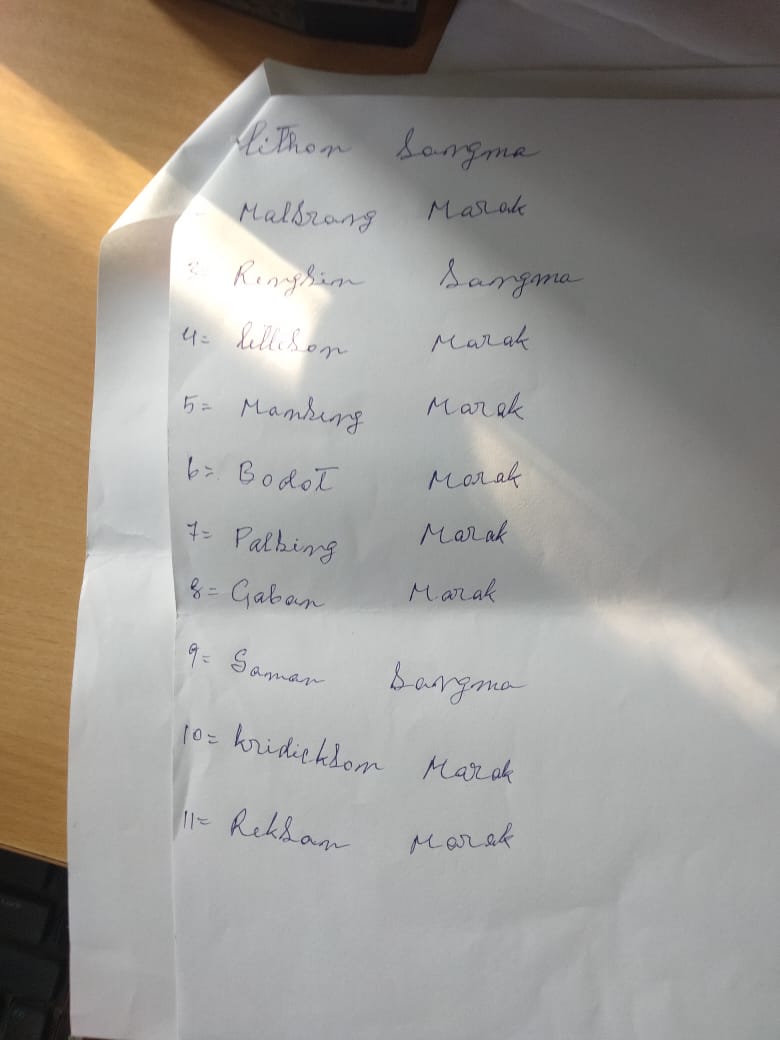 Lithon Sangma
Malsrang Marak
3= Rengsin Sangma
4= Lillison Marak
5= Manseng Marak
6= Bodot Marak
7= Palbing Marak
8= Gaban Marak
9= Saman Sangma
10= Kridickson Marak
11= Reksan Marak